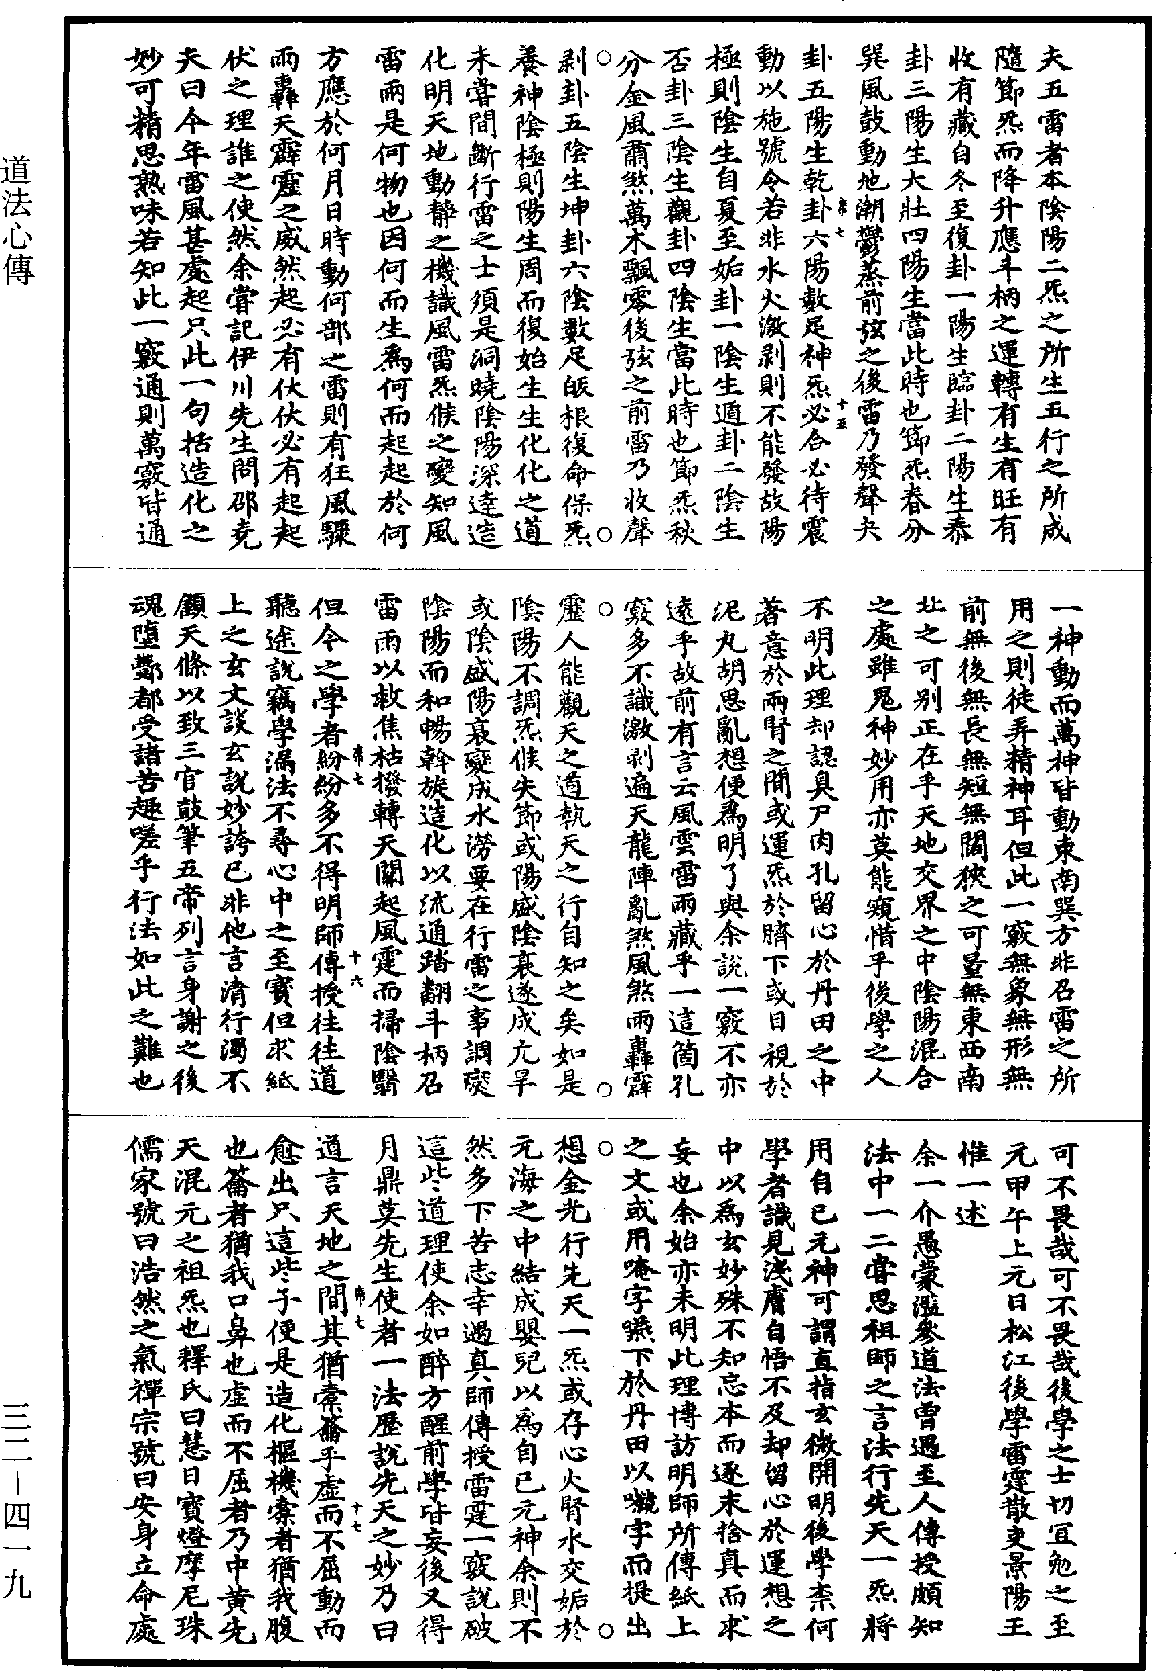 夫五雷者本陰陽二炁之所生五行之所成
隨節炁而降升應斗柄之運轉有生有旺有
收有藏自冬至復卦一陽生臨卦二陽生泰
卦三陽生大壯四陽生當此時也節炁春分
巽風鼓動地潮鬱蒸前弦之後雷乃發聲夬
卦五陽生乾卦六陽數足神炁必合必待震
動以施號令若非水火激剥則不能發故陽
極則陰生自夏至姤卦一陰生遁卦二陰生
否卦三陰生觀卦四陰生當此時也節炁秋
分金風肅煞萬木飄零後弦之前雷乃收聲
剥卦五陰生坤卦六陰數足皈根復命保炁
養神陰極則陽生周而復始生生化化之道
未嘗間斷行雷之士須是洞曉陰陽深達造
化明天地動靜之機識風雷炁候之變知風
雷雨是何物也因何而生爲何而起起於何
方應於何月日時動何部之雷則有狂風驟
雨轟天霹靂之威然起必有伏伏必有起起
伏之理誰之使然余嘗記伊川先生問邵堯
夫曰今年雷風甚處起只此一句括造化之
妙可精思熟味若知此一竅通則萬竅皆通
一神動而萬神皆動東南巽方非召雷之所
用之則徒弄精神耳但此一竅無象無形無
前無後無長無短無闊狹之可量無東西南
北之可別正在乎天地交界之中陰陽混合
之處雖鬼神妙用亦莫能窺惜乎後學之人
不明此理却認臭尸肉孔留心於丹田之中
著意於兩腎之間或運炁於臍下或目視於
泥丸胡思亂想便爲明了與余說一竅不亦
遠乎故前有言云風雲雷雨藏乎一這箇孔
竅多不識激剥遍天龍陣亂煞風煞雨轟霹
靂人能觀天之道執天之行自知之矣如是
陰陽不調炁候失節或陽盛陰衰遂成亢旱
或陰盛陽衰變成水澇要在行雷之事調燮
陰陽而和暢斡旋造化以流通踏翻斗柄召
雷雨以救焦枯撥轉天關起風霆而掃陰翳
但今之學者紛紛多不得明師傳授往往道
聽途說竊學滿法不尋心中之至寶但求紙
上之玄文談玄說妙誇己非他言清行濁不
顧天條以致三官鼓筆五帝列言身謝之後
魂墮酆都受諸苦趣嗟乎行法如此之難也
可不畏哉可不畏哉後學之士切宜勉之至
元甲午上元日松江後學雷霆散吏景陽王
惟一述
余一介愚蒙濫參道法曾遇至人傳授頗知
法中一二嘗思祖師之言法行先天一炁將
用自己元神可謂直指玄微開明後學柰何
學者識見淺膚自悟不及却留心於運想之
中以爲玄妙殊不知忘本而逐末捨真而求
妄也余始亦未明此理博訪明師所傳紙上
之文或用唵字嚥下於丹田以囕字而提出
想金光行先天一炁或存心火腎水交姤於
元海之中結成嬰兒以爲自己元神余則不
然多下苦志幸遇真師傳授雷霆一竅說破
這些道理使余如醉方醒前學皆妄後又得
月鼎莫先生使者一法歷說先天之妙乃曰
道言天地之間其猶橐籥乎虛而不屈動而
愈出只這些子便是造化樞機橐者猶我腹
也籥者猶我口鼻也虛而不屈者乃中黃先
天混元之祖炁也釋氏曰慧日寶燈摩尼珠
儒家號曰浩然之氣禪宗號曰安身立命處
席七
十五
席七
十六
席七
十七
道法心傳
三二－四一九